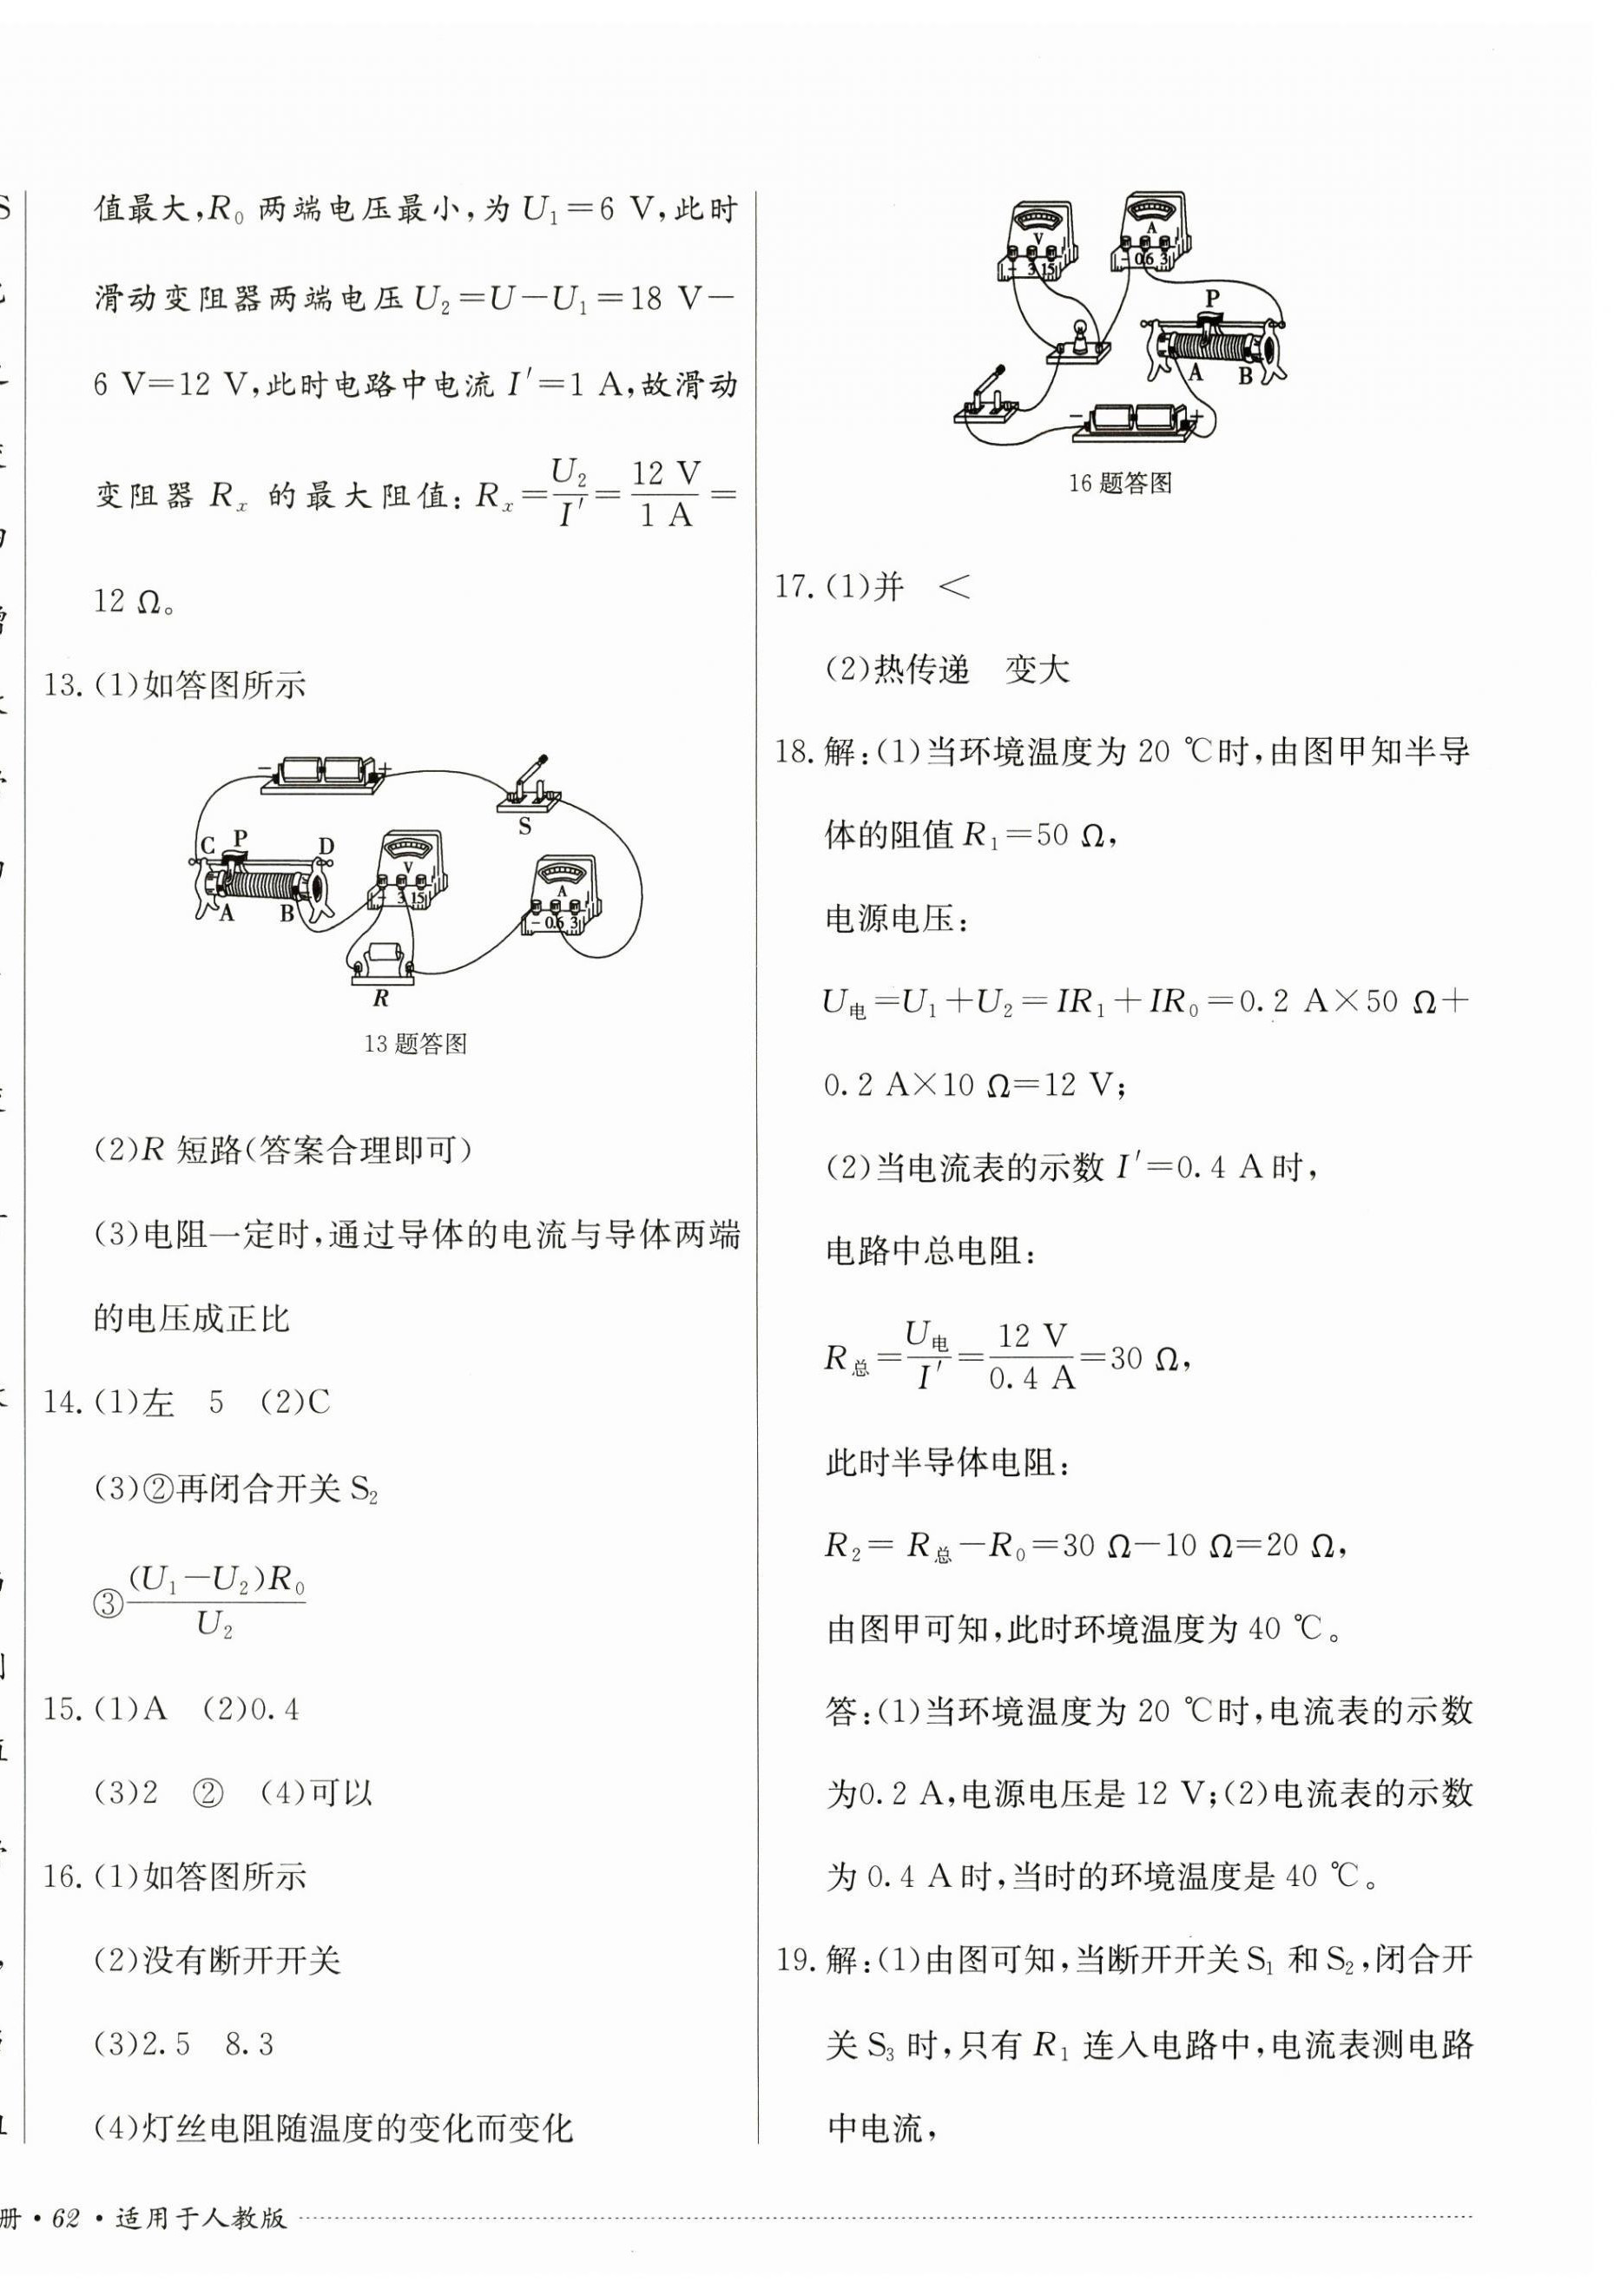 值最大,R₀ 两端电压最小,为 U₁=6 V,此时
滑动变阻器两端电压 U₂=U-U₁=18 V-
6 V=12 V,此时电路中电流 I′=1 A,故滑动
变阻器 Rₓ 的最大阻值: Rₓ=U₂/I′=12 V/1 A=
12 Ω。
13. (1)如答图所示
- +
S
C P D
A B
V
- 3 15
A
- 0.6 3
R
13 题答图
(2)R 短路(答案合理即可)
(3)电阻一定时,通过导体的电流与导体两端
的电压成正比
14. (1)左 5 (2)C
(3)②再闭合开关 S₂
③(U₁-U₂)R₀/U₂
15. (1)A (2)0.4
(3)2 ② (4)可以
16. (1)如答图所示
(2)没有断开开关
(3)2.5 8.3
(4)灯丝电阻随温度的变化而变化
V
- 3 15
A
- 0.6 3
P
A B
- +
16 题答图
17. (1)并 <
(2)热传递 变大
18. 解:(1)当环境温度为 20 ℃时,由图甲知半导
体的阻值 R₁=50 Ω,
电源电压:
U电=U₁+U₂=IR₁+IR₀=0.2 A×50 Ω+
0.2 A×10 Ω=12 V;
(2)当电流表的示数 I′=0.4 A 时,
电路中总电阻:
R总=U电/I′=12 V/0.4 A=30 Ω,
此时半导体电阻:
R₂= R总-R₀=30 Ω-10 Ω=20 Ω,
由图甲可知,此时环境温度为 40 ℃。
答:(1)当环境温度为 20 ℃时,电流表的示数
为0.2 A,电源电压是 12 V;(2)电流表的示数
为 0.4 A 时,当时的环境温度是 40 ℃。
19. 解:(1)由图可知,当断开开关 S₁ 和 S₂,闭合开
关 S₃ 时,只有 R₁ 连入电路中,电流表测电路
中电流,
册·62·适用于人教版